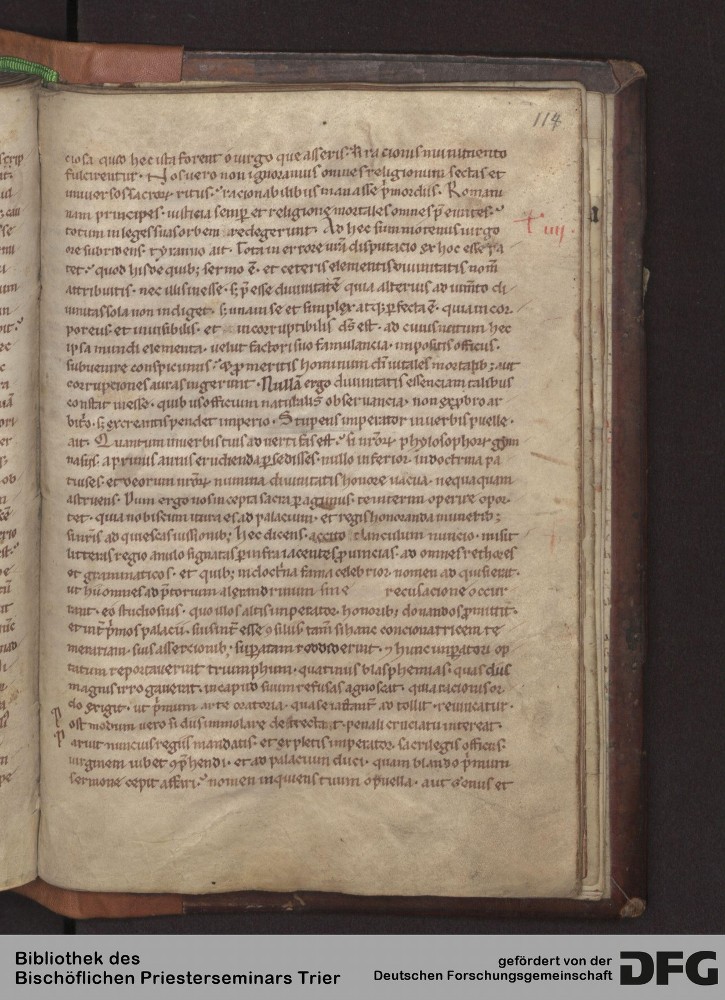 114
ciosa quod hec ista forent o virgo que asseris. si racionis munimento
fulcirentur. Nos vero non ignoramus omnes religionum sectas et
universos sacrorum ritus. racionabilibus manasse primordiis. Romani
nam principes. iusticia semper et religione mortales omnes
totum in leges suas orbem redegerunt. Ad hec summotenus virgo
ore subridens. tyranno ait. Tota in errore disputacio ex hoc esse
tet. quod hisdē quib; sermo ē. et ceteris elementis divinitatis nom̄
attribuitis. nec illis inesse. esse divinitatē quia alterius
unitas sola non indiget. unam se et simplex atq; perfecta ē. quia incor
poreus. et invisibilis. et incorruptibilis ds̄ est. ad cuius nutum hec
ipsa mundi elementa. velut factori suo famulancia. impositis officiis.
subvenire conspicimus. meritis hominum vitales mortalib; aut
corrupciones auras ingerunt. Nullā ergo divinitatis essenciam talibus
constat inesse. observancia. non ex
creantis pendet imperio. Stupens imperator in verbis puelle.
ait. Quantum in verbis tuis est. phylosophorum gym
nasiis. a primis annis erudienda persedisses. nullo inferior. in doctrina pa
numina divinitatis honore vacua. nequaquam
astruens. Dum ergo nos incepta sacra peragimus te interim operire opor
tet. quia nobiscum itura es ad palacium. et regis honoranda munerib;
si nr̄is adquiescas iussionib; hec dicens. accito clanculum nuncio. misit
litteras regio anulo signatas per infra iacentes provincias. ad omnes rethores
et grammaticos. et quib; in doctrina fama celebrior nomen adquisierit.
ut omnes ad pretorium alexandrinum sine recusacione occur
rant. eo studiosius. quo illos altis imperator honorib; donandos
et primos palacii. si concionatricem te
merariam. suis assercionib; superatam. hunc imperatori op
tatum reportaverint triumphum. quatinus blasphemias. quas diis
magnis irrogaverat. in caput suum refusas agnoscat. quia racionis or
do exigit. ut primum arte oratoria. quase tollit. revincatur.
Post modum vero si diis immolare detrectat. penali cruciatu intereat.
Pariuit nuncius regiis mandatis. et expletis imperator sacrilegis officiis.
virginem iubet conprehendi. et ad palacium duci. quam blando primum
sermone cepit affari. nomen inquiens tuum o puella. aut genus et
Bibliothek des
Bischöflichen Priesterseminars Trier
gefördert von der
Deutschen Forschungsgemeinschaft
DFG